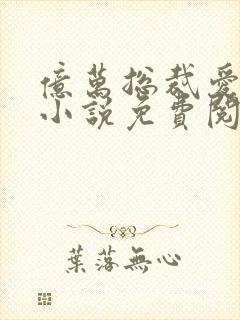 億萬總裁愛
小說免費閱
葉落無心